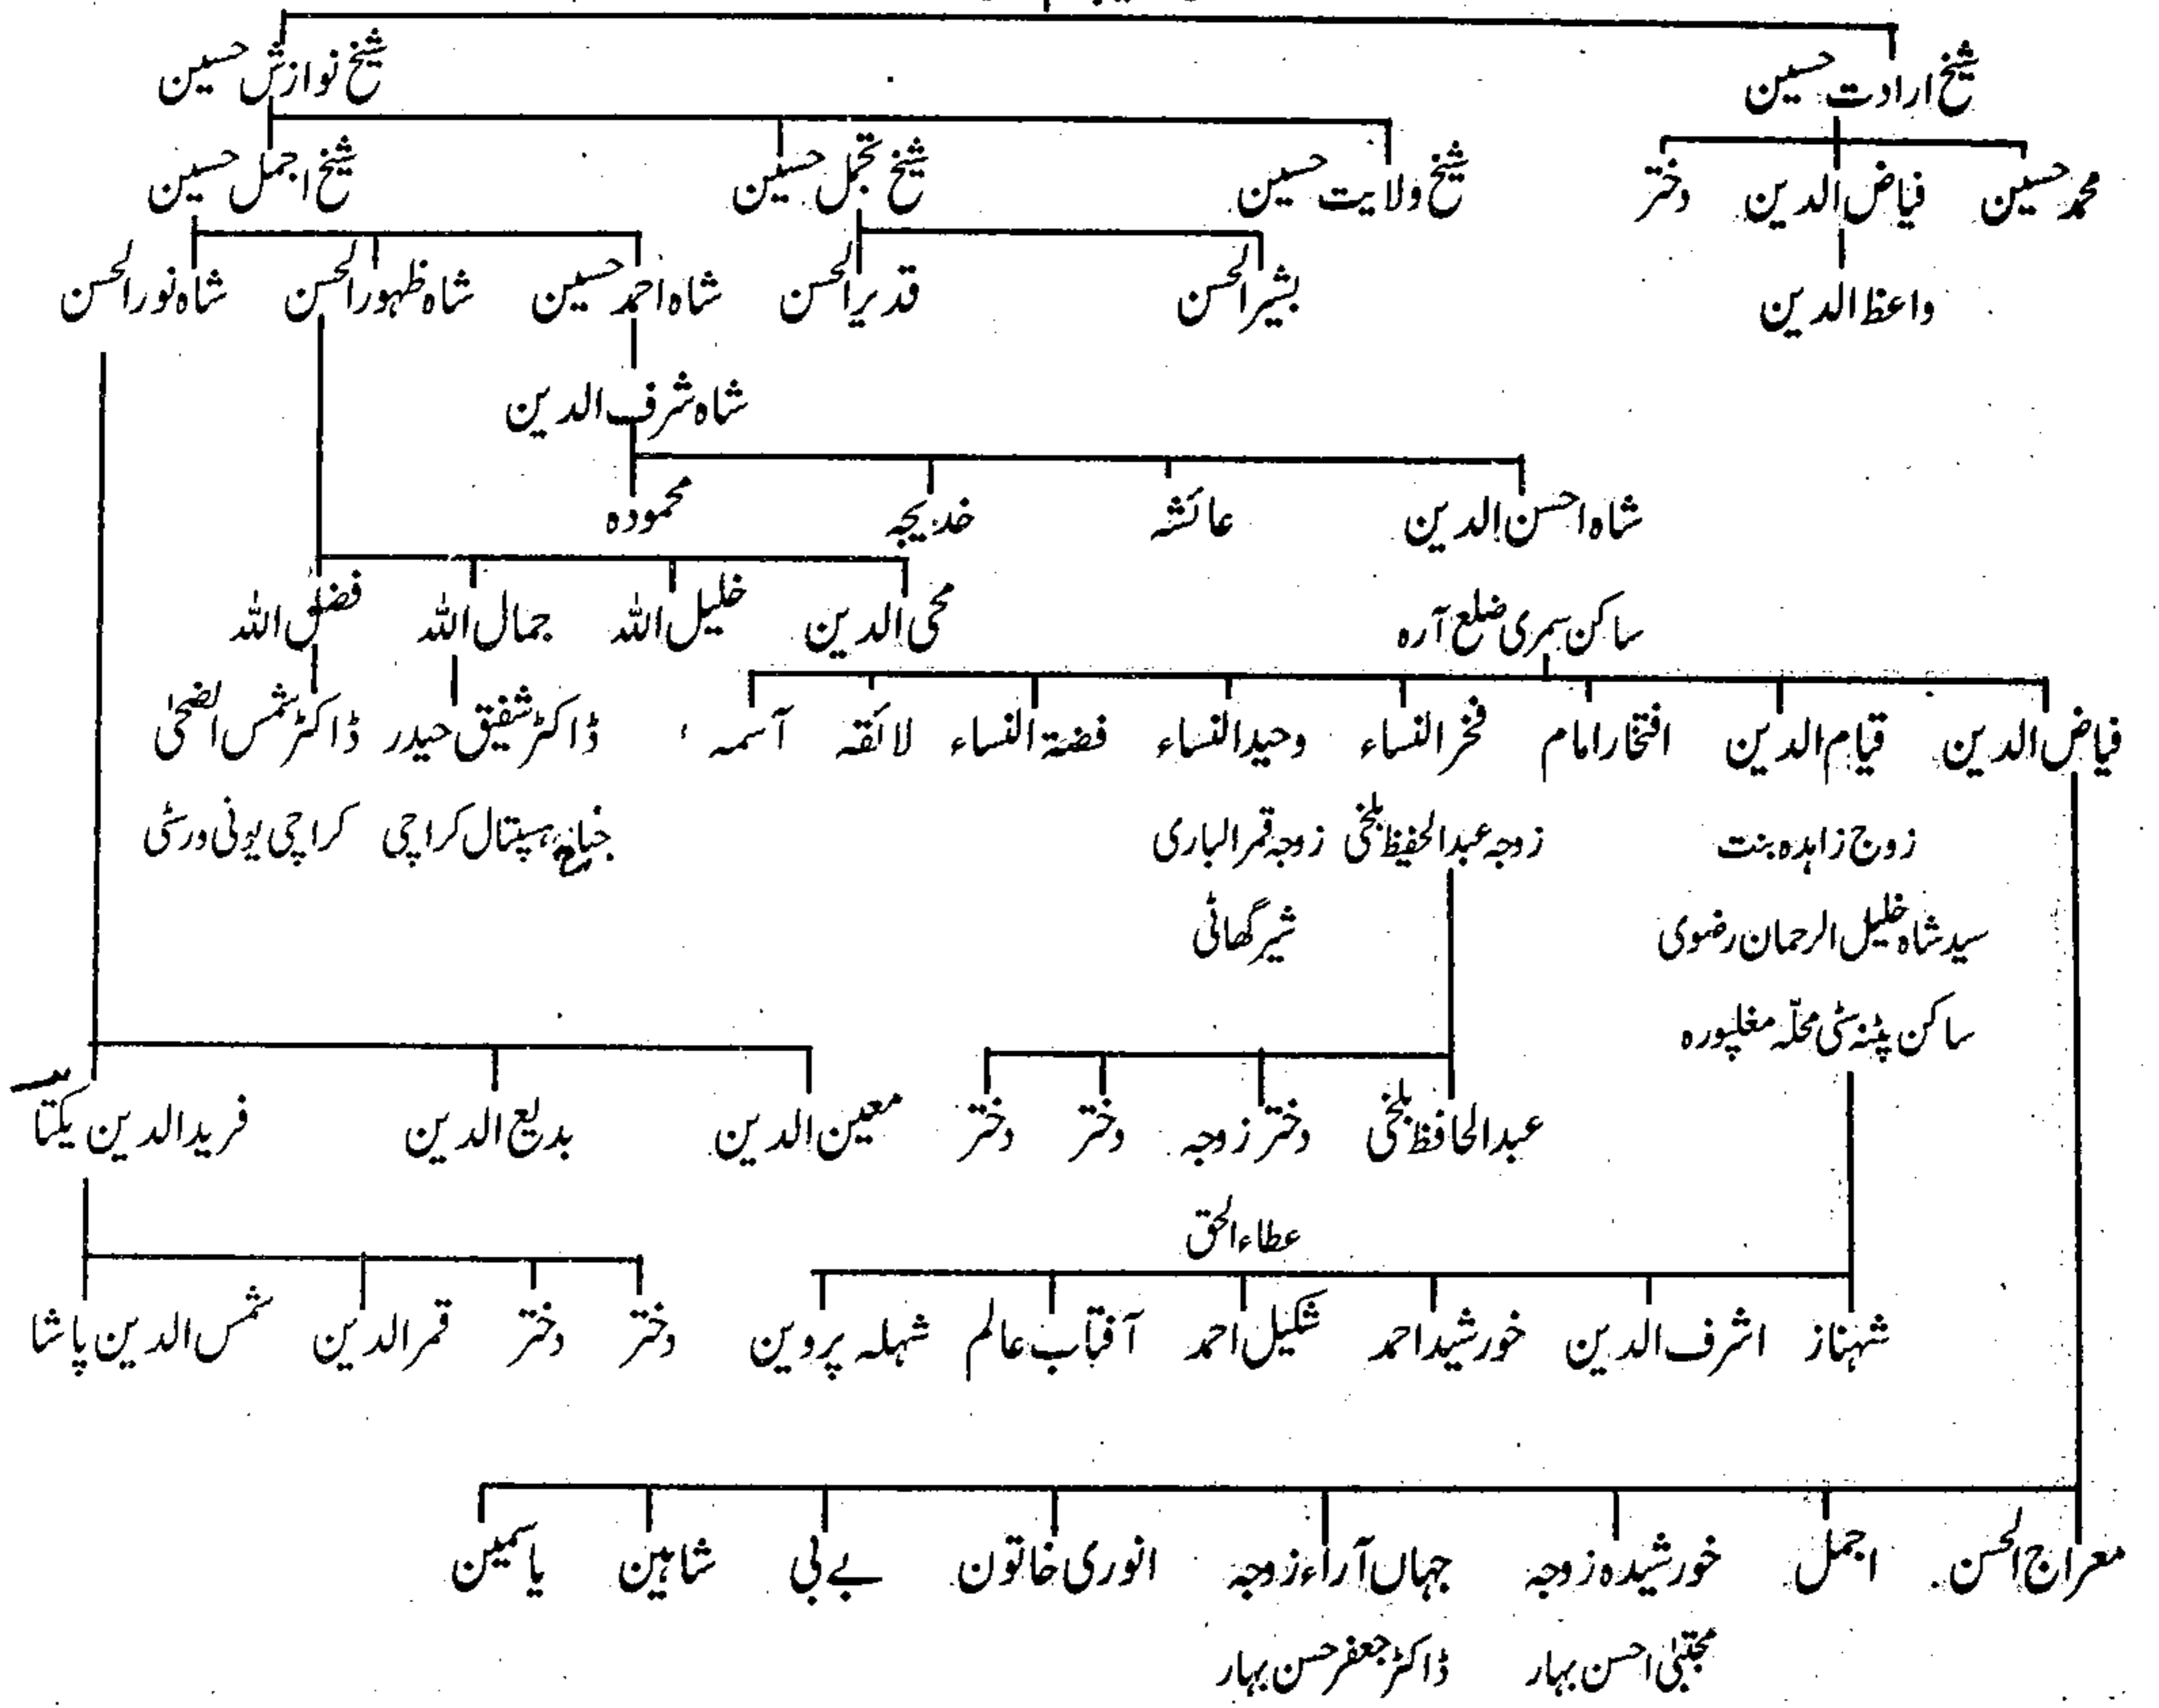 شیخ ارادت حسین شیخ نوازش حسین
محمد حسین فیاض الدین دختر شیخ ولایت حسین شیخ تجمل حسین شیخ اجمل حسین
واعظ الدین بشیر الحسن قدیر الحسن شاہ احمد حسین شاہ ظہور الحسن شاہ نور الحسن
شاہ شرف الدین
شاہ احسن الدین عائشہ خدیجہ محمودہ
ساکن سمری ضلع آرہ محی الدین خلیل اللہ جمال اللہ فضل اللہ
فیاض الدین قیام الدین افتخار امام فخر النساء وحید النساء فضۃ النساء لائقہ آسمہ ڈاکٹر شفیق حیدر ڈاکٹر شمس الضحیٰ
زوج زاہدہ بنت زوجہ عبدالحفیظ بلخی زوجہ قمر الباری جناح ہسپتال کراچی کراچی یونی ورسٹی
سید شاہ خلیل الرحمان رضوی شیر گھاٹی
ساکن پٹنہ سٹی محلّہ مغلپورہ
عبدالحافظ بلخی دختر زوجہ دختر دختر معین الدین بدیع الدین فرید الدین یکتا
عطاء الحق
شہناز اشرف الدین خورشید احمد شکیل احمد آفتاب عالم شہلہ پروین دختر دختر قمر الدین شمس الدین پاشا
معراج الحسن اجمل خورشیدہ زوجہ جہاں آراء زوجہ انوری خاتون بے بی شاہین یاسمین
مجتبیٰ احسن بہار ڈاکٹر جعفر حسن بہار